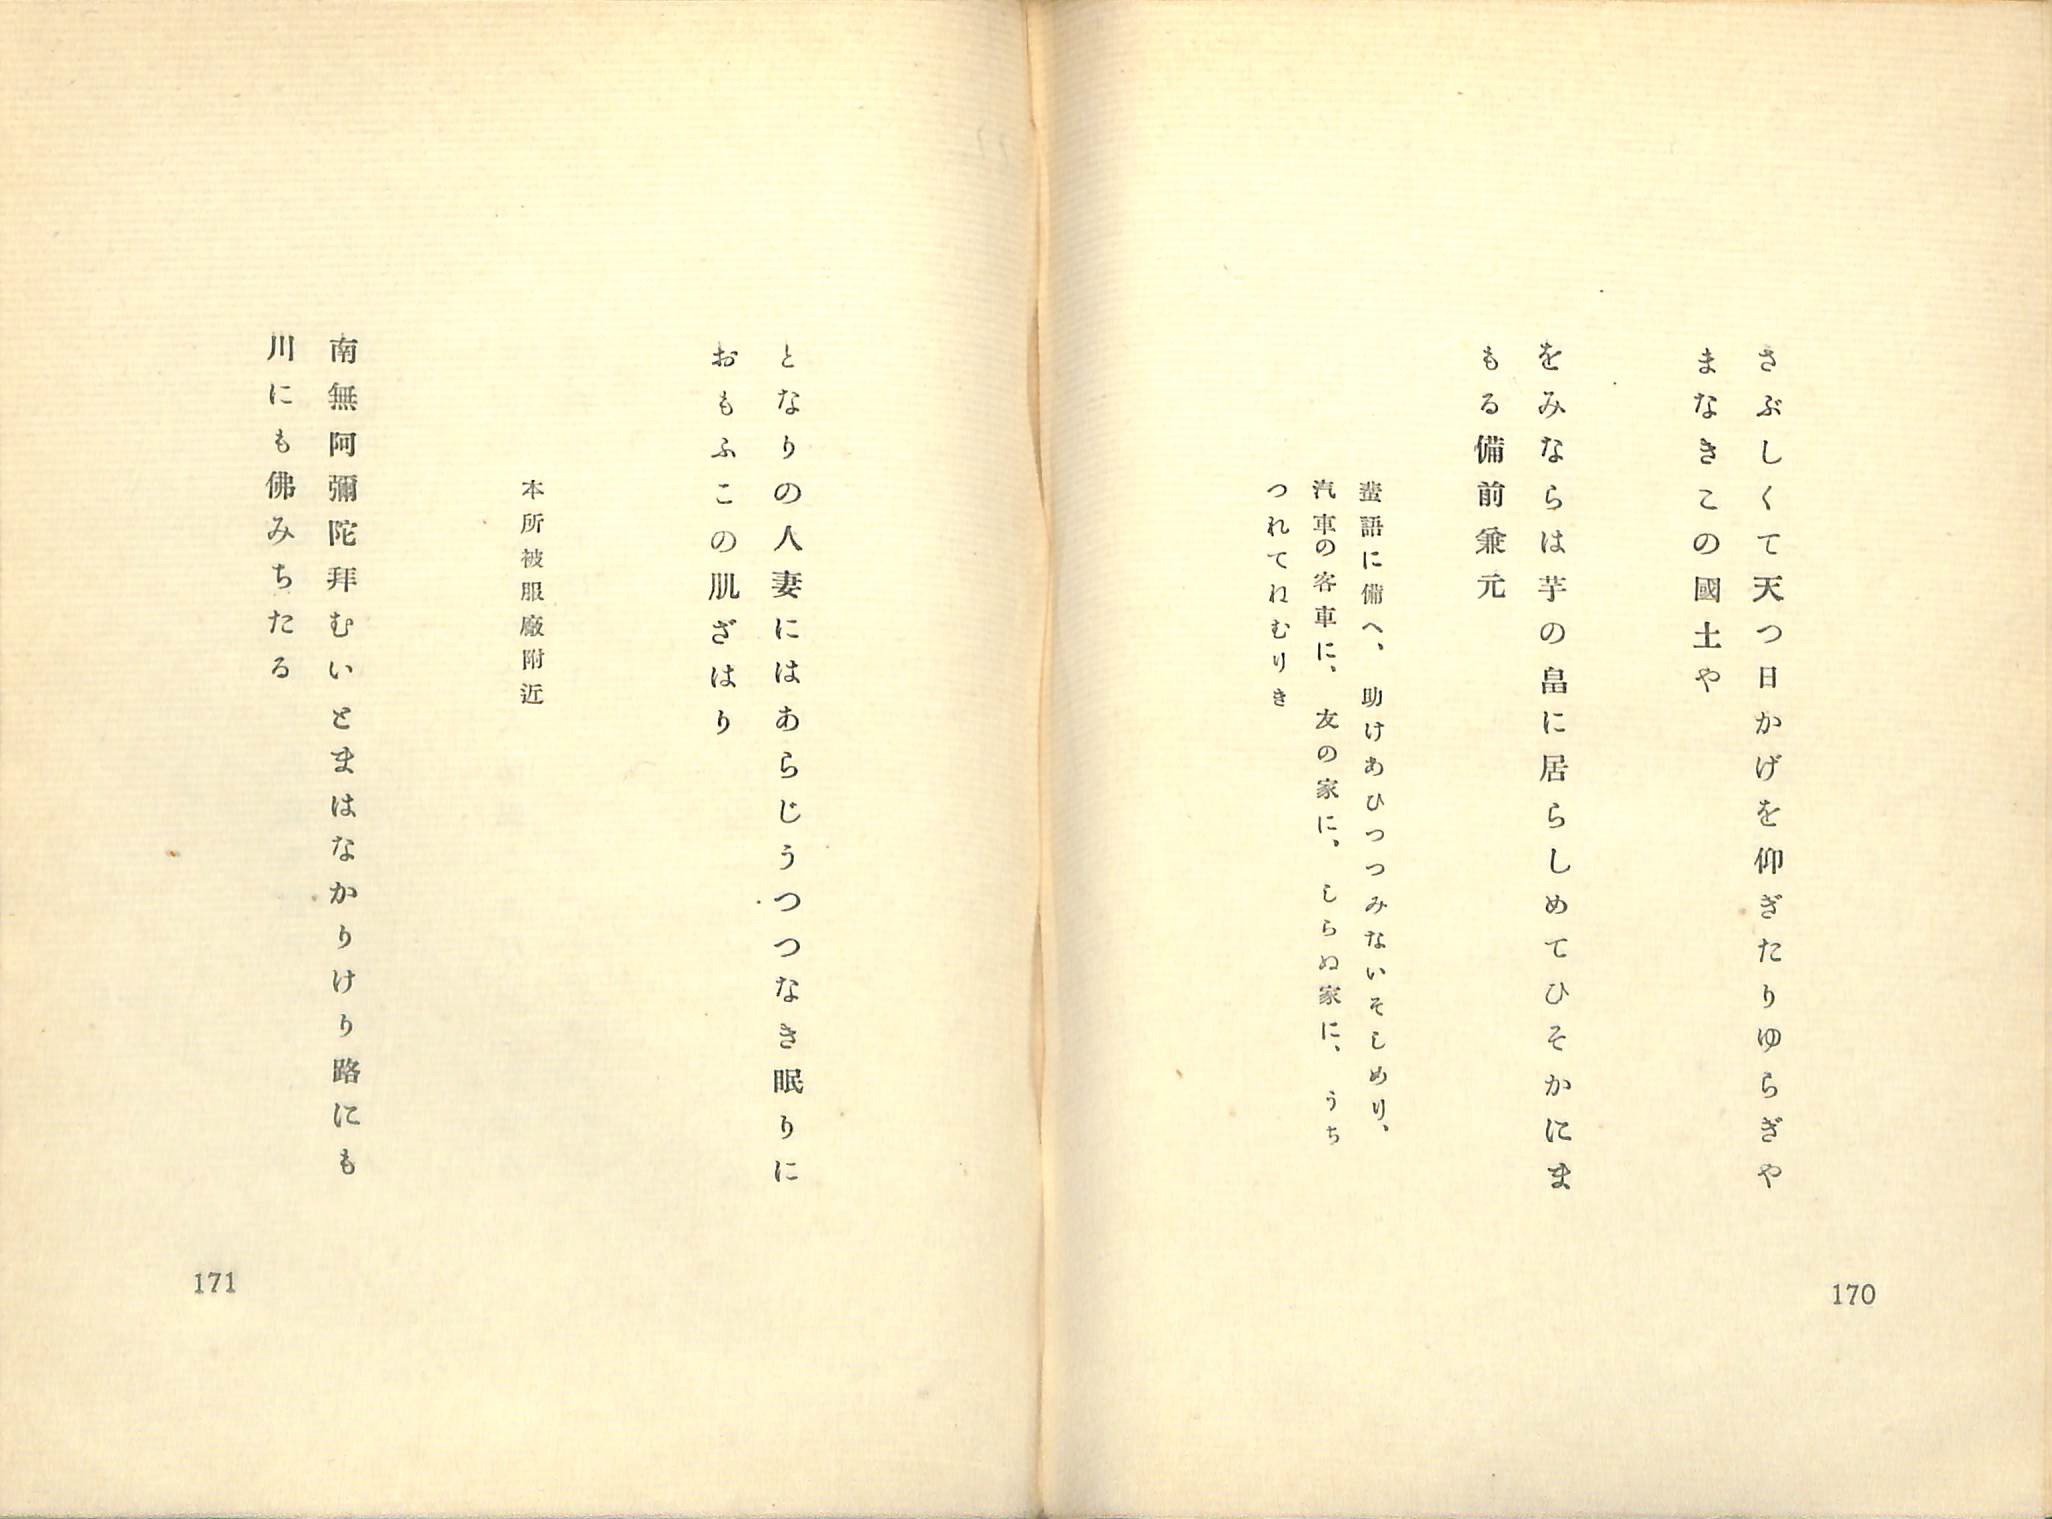 さぶしくて天つ日かげを仰ぎたりゆらぎや
まなきこの國土や
をみならは芋の畠に居らしめてひそかにま
もる備前兼元
蜚語に備へ、助けあひつつみないそしめり、
汽車の客車に、友の家に、しらぬ家に、うち
つれてねむりき
170
となりの人妻にはあらじうつつなき眠りに
おもふこの肌ざはり
本所被服廠附近
南無阿彌陀拜むいとまはなかりけり路にも
川にも佛みちたる
171